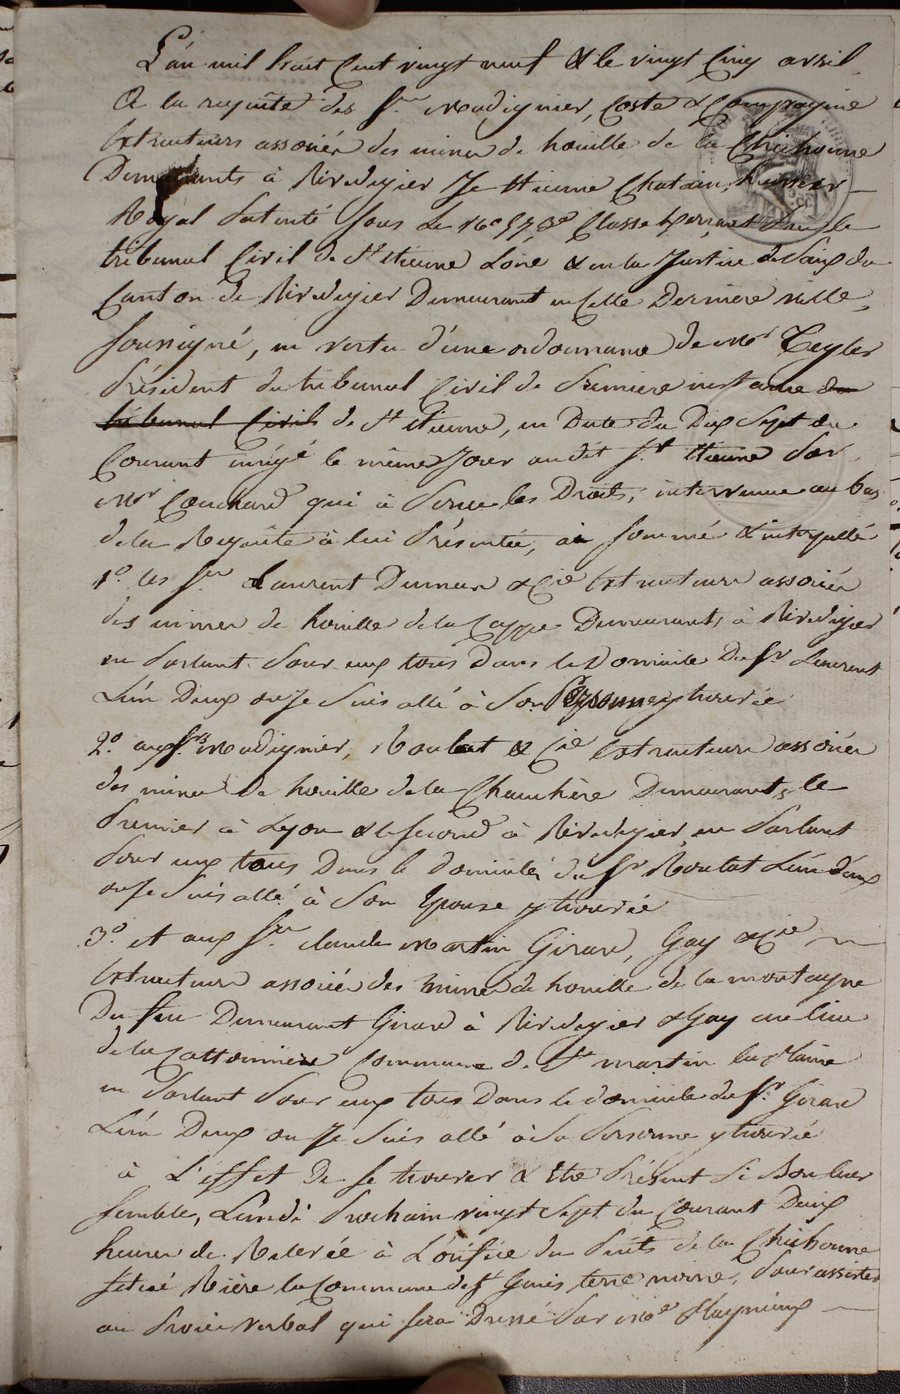 L'an mil huit Cent vingt neuf & le vingt Cinq avril
A la requête des Srs Madignier, Coste & Compagnie
Extracteurs associés des mines de houille de la Chichonne
Demeurants à Rivedegier Je Etienne Chatain, huissier
Royal Patenté Sous Le No Classe exerçant près le
tribunal Civil de St Etienne Loire & en la Justice de Paix du
Canton de Rivedegier Demeurant en Cette Derniere ville
Soussigné, en vertu d'une ordonnance de Mr Teyter
Président du tribunal Civil de Premiere instance du
tribunal Civil de St Etienne, en Date du Dix Sept du
Courant enrégé le même Jour audit St Etienne Par
Mr Couchard qui à Perçu les Droits, intervenue au bas
de la Requête à lui Présentée, ai Sommé & interpellé
1o les Srs Laurent Dumas & Cie Extracteurs associés
des mines de houille de la Cappe Demeurants à Rivedegier
en Parlant Pour eux tous Dans le Domicile Du Sr Laurent
L'un Deux ou Je Suis allé à Son Personne y trouvée
2o aux Srs Madignier, Roulat & Cie Extracteurs associés
des mines De houille de la Chauchère Demeurants, le
Premier à Lyon & le Second à Rivedegier, en Parlant
Pour eux tous Dans le domicile du Sr Roulat L'un d'eux
ou Je Suis allé à Son Epouse y trouvée
3o et aux Srs Claude Martin Girard, Gay & Cie
Extracteurs associés des mines de houille de la montagne
Du feu Demeurant Girard à Rivedegier & Gay au lieu
de la Cattonnière Commune de St martin la Plaine
en Parlant Pour eux tous Dans le domicile du Sr Girard
L'un Deux ou Je Suis allé à Sa Personne y trouvée
à L'effet De Se trouver & être Présent Si Bon leur
Semble, Lundi Prochain vingt Sept du Courant Deux
heures de Relevée à L'orifice du Puits de la Chichonne
Situé Rière la Commune de St Genis terre noire, Pour assister
au Procès verbal qui Sera Dressé Par Me Playnieux